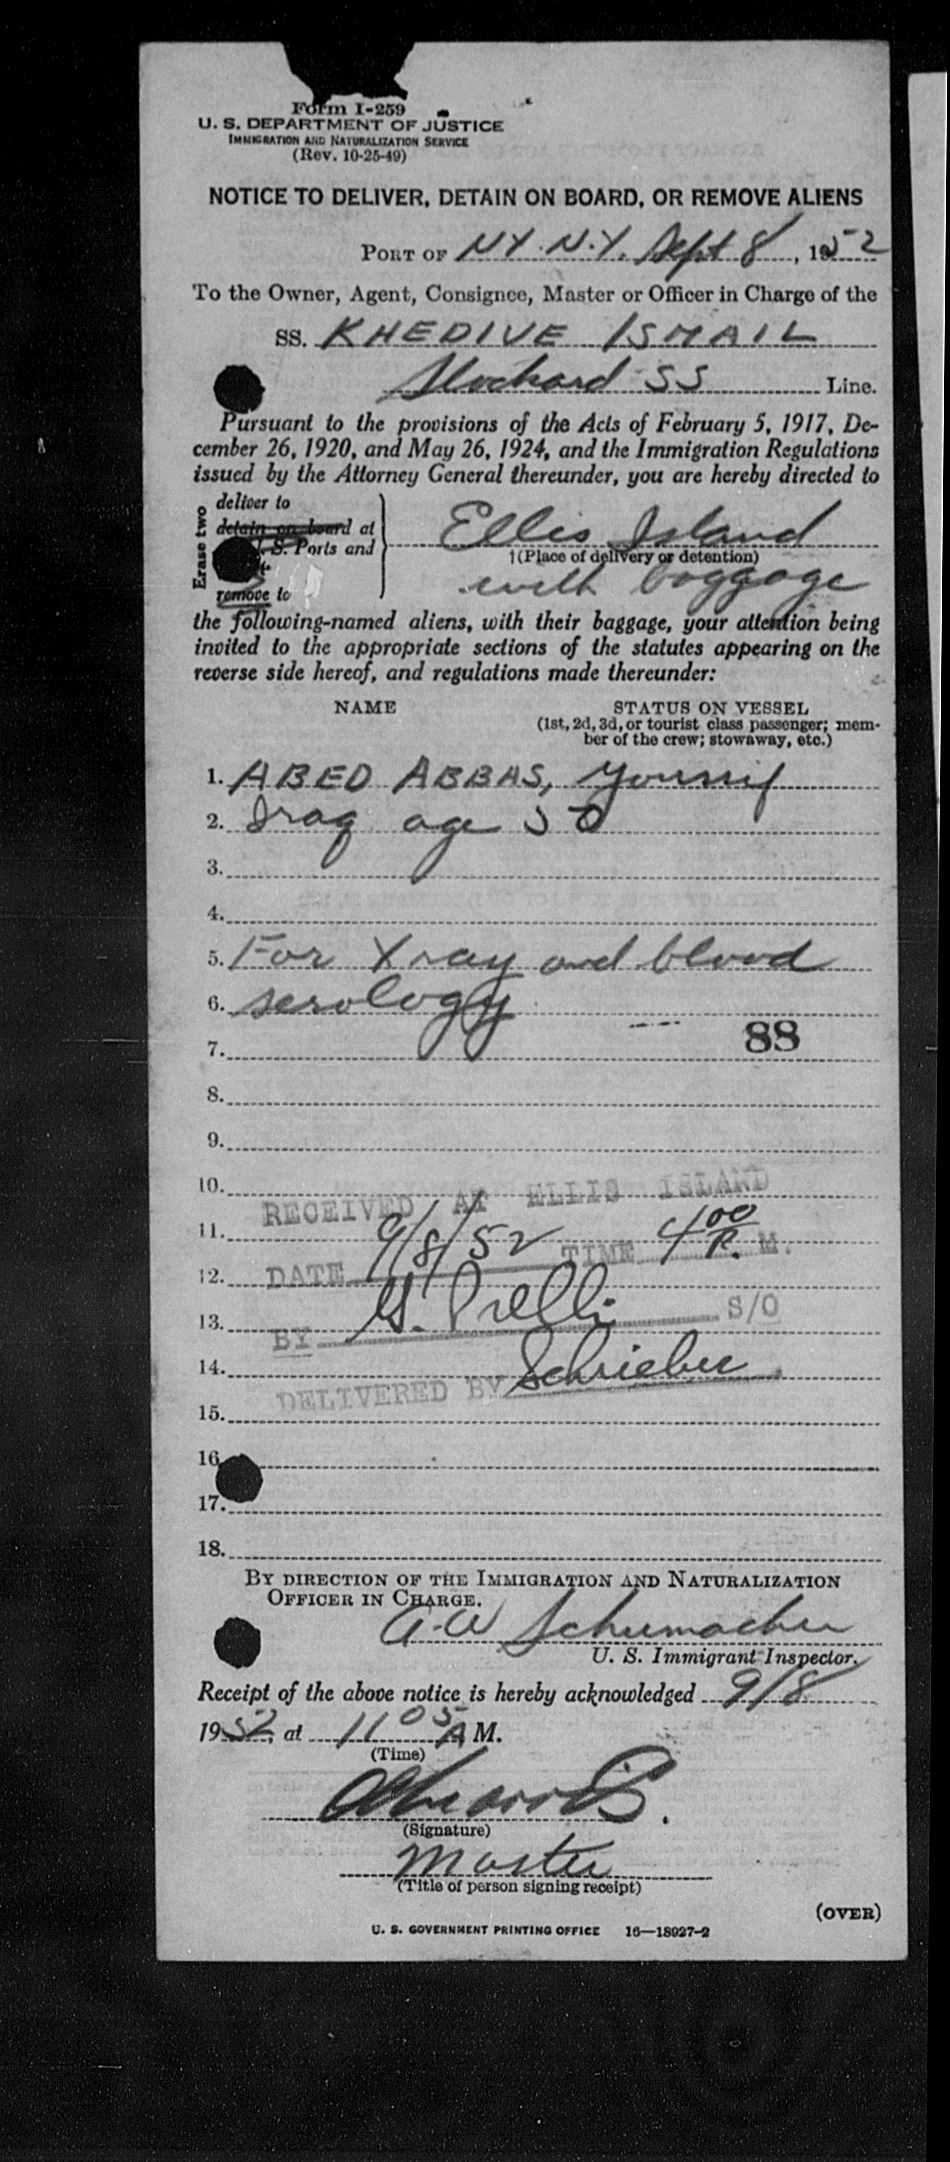 Form I-259
U. S. DEPARTMENT OF JUSTICE
IMMIGRATION AND NATURALIZATION SERVICE
(Rev. 10-25-49)
NOTICE TO DELIVER, DETAIN ON BOARD, OR REMOVE ALIENS
PORT OF NY. N.Y. Sept 8, 1952
To the Owner, Agent, Consignee, Master or Officer in Charge of the
SS. KHEDIVE ISMAIL
SS Line.
Pursuant to the provisions of the Acts of February 5, 1917, De-
cember 26, 1920, and May 26, 1924, and the Immigration Regulations
issued by the Attorney General thereunder, you are hereby directed to
Erase two
deliver to
detain on board at
S. Ports and
remove to
Ellis Island
†(Place of delivery or detention)
with baggage
the following-named aliens, with their baggage, your attention being
invited to the appropriate sections of the statutes appearing on the
reverse side hereof, and regulations made thereunder:
NAME STATUS ON VESSEL
(1st, 2d, 3d, or tourist class passenger; mem-
ber of the crew; stowaway, etc.)
1. ABED ABBAS, Youssif
2. Iraq age 50
3.
4.
5. For Xray and blood
6. serology
88
7.
8.
9.
10.
RECEIVED AT ELLIS ISLAND
11.
DATE 9/8/52 TIME 4 00 P. M.
12.
13.
BY S/O
14.
DELIVERED BY Schrieber
15.
16.
17.
18.
BY DIRECTION OF THE IMMIGRATION AND NATURALIZATION
OFFICER IN CHARGE.
A.W Schumacher
U. S. Immigrant Inspector.
Receipt of the above notice is hereby acknowledged 9/8
1952, at 11 05 A M.
(Time)
(Signature)
Master
(Title of person signing receipt)
(OVER)
U. S. GOVERNMENT PRINTING OFFICE 16—18927-2